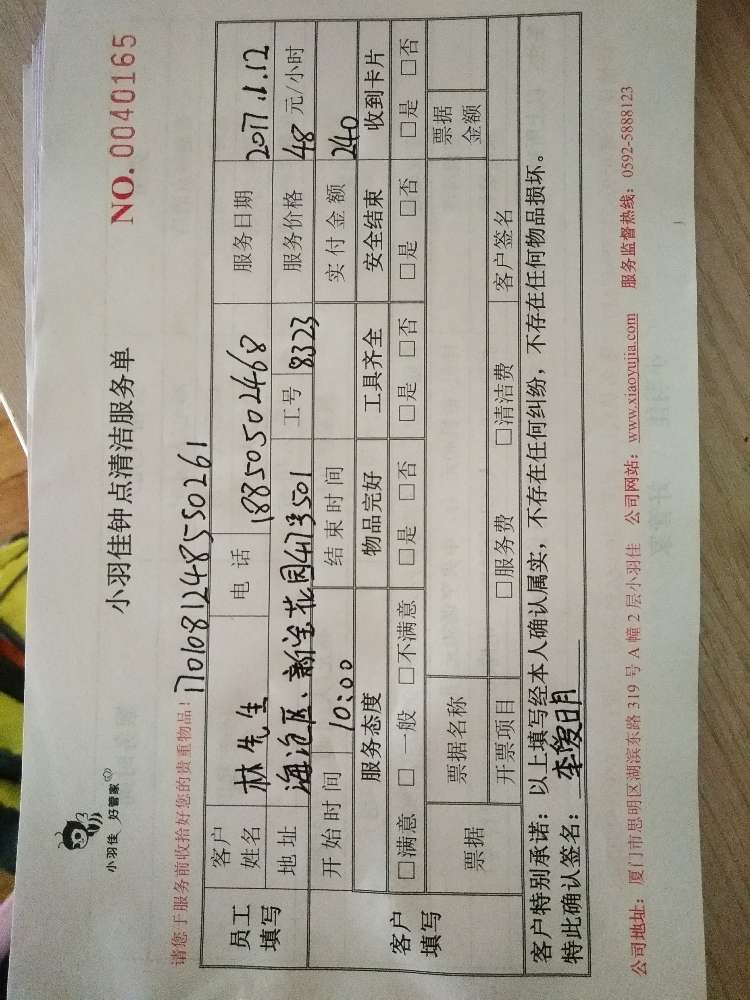 小羽佳 好管家
NO. 0040165
小羽佳钟点清洁服务单
请您于服务前收拾好您的贵重物品！1701081248550261
员工填写 客户姓名 林先生 电话 18850502468 服务日期 2017.1.12
地址 海沧区、新宝花园47号501 工号 8323 服务价格 48 元/小时
开始时间 10:00 结束时间 实付金额 240
客户填写 服务态度 物品完好 工具齐全 安全结束 收到卡片
□满意 □一般 □不满意 □是 □否 □是 □否 □是 □否 □是 □否
票据 票据名称 票据金额
开票项目 □服务费 □清洁费 客户签名
客户特别承诺：以上填写经本人确认属实，不存在任何纠纷，不存在任何物品损坏。
特此确认签名：
公司地址：厦门市思明区湖滨东路 319 号 A 幢 2 层小羽佳 公司网站：www.xiaoyujia.com 服务监督热线：0592-5888123